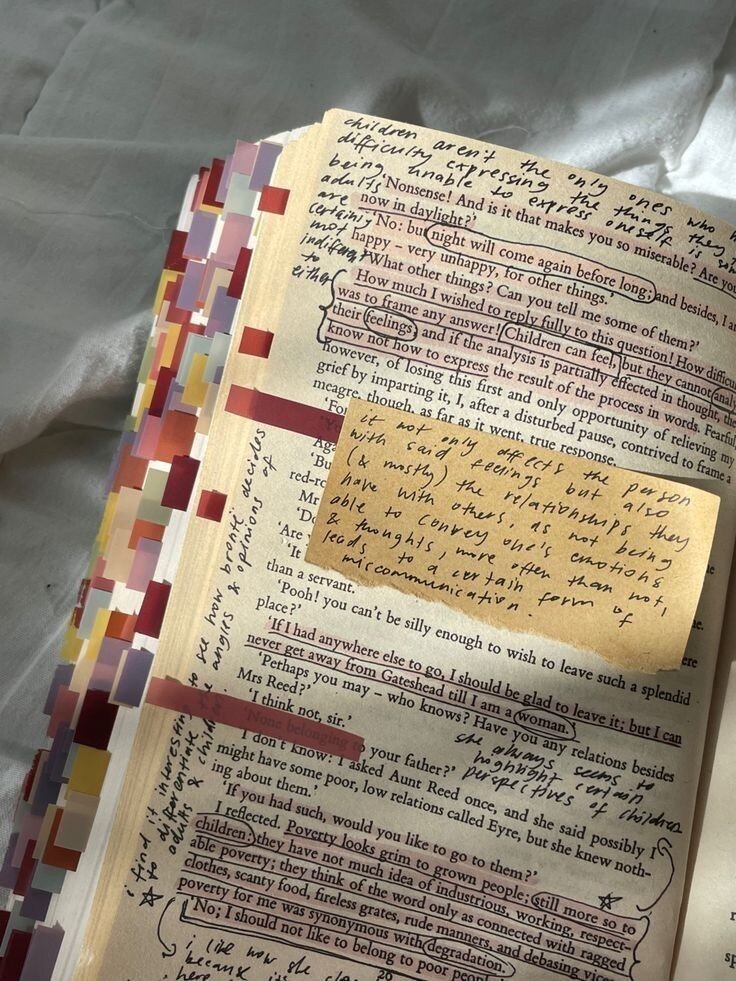 children aren't the only ones who
difficulty expressing the things they
being unable to express oneself is
adults
are
certainly
not
indifferent
to
either
'Nonsense! And is it that makes you so miserable? Are you
now in daylight?'
'No: but night will come again before long; and besides, I a
happy – very unhappy, for other things.'
'What other things? Can you tell me some of them?'
How much I wished to reply fully to this question! How difficu
was to frame any answer! Children can feel, but they cannot analy
their feelings; and if the analysis is partially effected in thought, the
know not how to express the result of the process in words. Fearful,
however, of losing this first and only opportunity of relieving my
grief by imparting it, I, after a disturbed pause, contrived to frame a
meagre, though, as far as it went, true response.
'For
Aga
'Bu
red-ro
Mr
'Do
'Are
'It
it not only affects the person
with said feelings but also
(& mostly) the relationships they
have with others, as not being
able to convey one's emotions
& thoughts, more often than not,
leads to a certain form of
miscommunication.
than a servant.
'Pooh! you can't be silly enough to wish to leave such a splendid
place?'
'If I had anywhere else to go, I should be glad to leave it; but I can
never get away from Gateshead till I am a woman.'
'Perhaps you may – who knows? Have you any relations besides
Mrs Reed?'
'I think not, sir.'
'None belonging to your father?'
'I don't know: I asked Aunt Reed once, and she said possibly I
might have some poor, low relations called Eyre, but she knew noth-
ing about them.'
she always seems to
highlight certain
perspectives of children
'If you had such, would you like to go to them?'
I reflected. Poverty looks grim to grown people; still more so to
children: they have not much idea of industrious, working, respect-
able poverty; they think of the word only as connected with ragged
clothes, scanty food, fireless grates, rude manners, and debasing vices:
poverty for me was synonymous with degradation.
'No; I should not like to belong to poor people
20
i find it interesting to see how brontë decides
to differentiate the angles & opinions of
adults & children
i like how she
because it
here